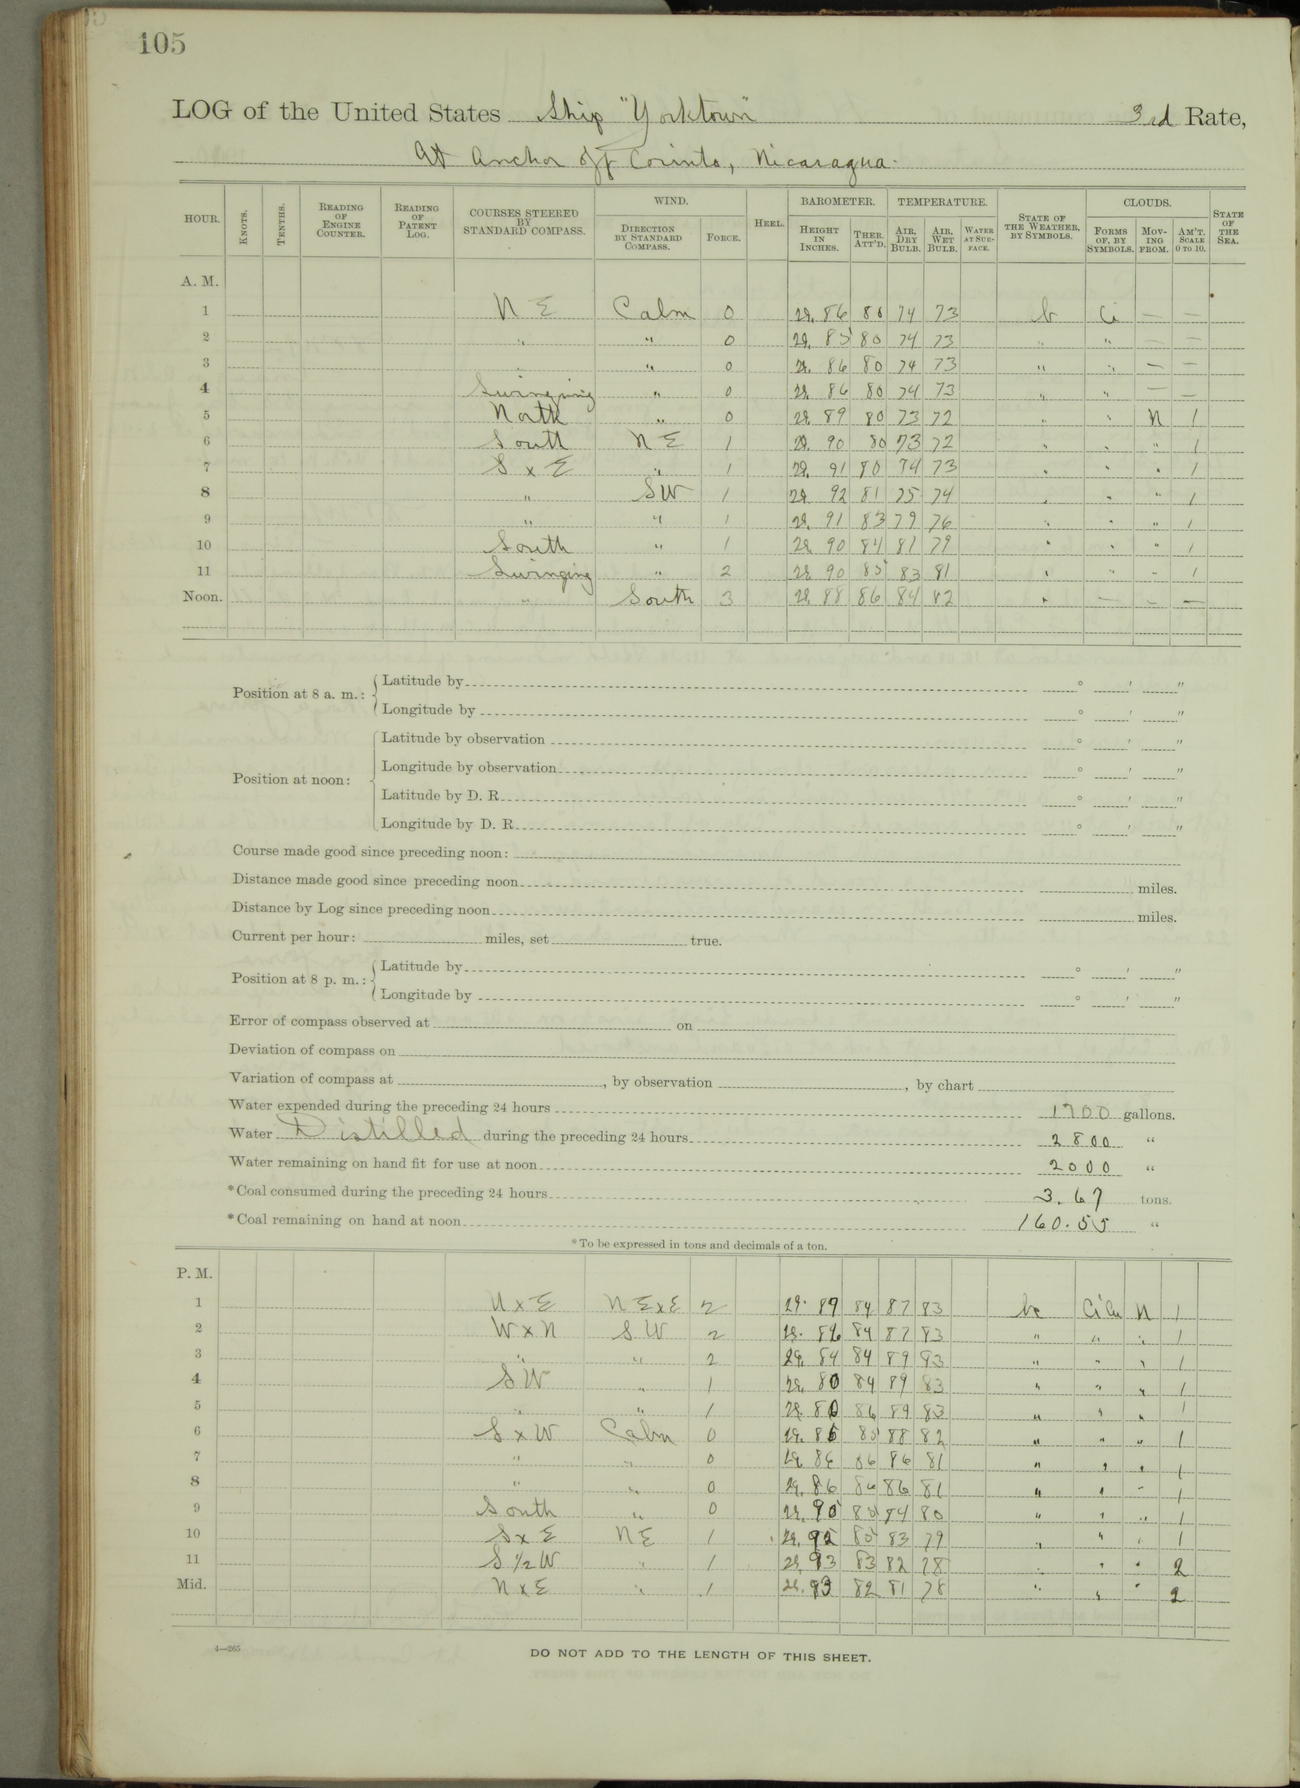 105
LOG of the United States Ship "Yorktown" 3rd Rate,
At Anchor off Corinto, Nicaragua.
HOUR. KNOTS. TENTHS. READING OF ENGINE COUNTER. READING OF PATENT LOG. COURSES STEERED BY STANDARD COMPASS. WIND. DIRECTION BY STANDARD COMPASS. FORCE. HEEL. BAROMETER. HEIGHT IN INCHES. THER. ATT'D. TEMPERATURE. AIR, DRY BULB. AIR, WET BULB. WATER AT SUR-FACE. STATE OF THE WEATHER, BY SYMBOLS. CLOUDS. FORMS OF, BY SYMBOLS. MOV-ING FROM. AM'T. SCALE 0 TO 10. STATE OF THE SEA.
A. M.
1 N E Calm 0 29. 86 80 74 73 b Ci — —
2 " " 0 29. 85 80 74 73 " " — —
3 " 0 29. 86 80 74 73 " " — —
4 Swinging " 0 29. 86 80 74 73 " " — —
5 North " 0 29. 89 80 73 72 " " N 1
6 South N E 1 29. 90 80 73 72 " " " 1
7 S x E " 1 29. 91 80 74 73 " " " 1
8 " SW 1 29 92 81 75 74 " " " 1
9 " " 1 29. 91 83 79 76 " " " 1
10 South " 1 29. 90 84 81 79 " " " 1
11 Swinging " 2 29 90 85 83 81 " " " 1
Noon. " South 3 29. 88 86 84 82 " — — —
Position at 8 a. m.: Latitude by ° ′ ″
Longitude by ° ′ ″
Position at noon: Latitude by observation ° ′ ″
Longitude by observation ° ′ ″
Latitude by D. R. ° ′ ″
Longitude by D. R. ° ′ ″
Course made good since preceding noon:
Distance made good since preceding noon miles.
Distance by Log since preceding noon miles.
Current per hour: miles, set true.
Position at 8 p. m.: Latitude by ° ′ ″
Longitude by ° ′ ″
Error of compass observed at on
Deviation of compass on
Variation of compass at , by observation , by chart
Water expended during the preceding 24 hours 1700 gallons.
Water Distilled during the preceding 24 hours 2800 "
Water remaining on hand fit for use at noon 2000 "
*Coal consumed during the preceding 24 hours 3.67 tons.
*Coal remaining on hand at noon 160.55 "
*To be expressed in tons and decimals of a ton.
P. M.
1 N x E N E x E 2 29. 89 84 87 83 bc Ci Cu N 1
2 W x N S W 2 29. 86 84 87 83 " " " 1
3 " " 2 29. 84 84 89 83 " " " 1
4 SW " 1 29. 80 84 89 83 " " " 1
5 " " 1 29. 80 86 89 83 " " " 1
6 S x W Calm 0 29. 85 88 82 " " " 1
7 " " 0 29. 86 86 86 81 " " " 1
8 " " 0 29. 86 86 86 81 " " " 1
9 South " 0 29. 90 85 84 80 " " " 1
10 S x E NE 1 29. 92 85 83 79 " " " 1
11 S ½ W " 1 29. 93 83 82 78 " " " 2
Mid. N x E " 1 29. 93 82 81 78 " " " 2
4—265
DO NOT ADD TO THE LENGTH OF THIS SHEET.